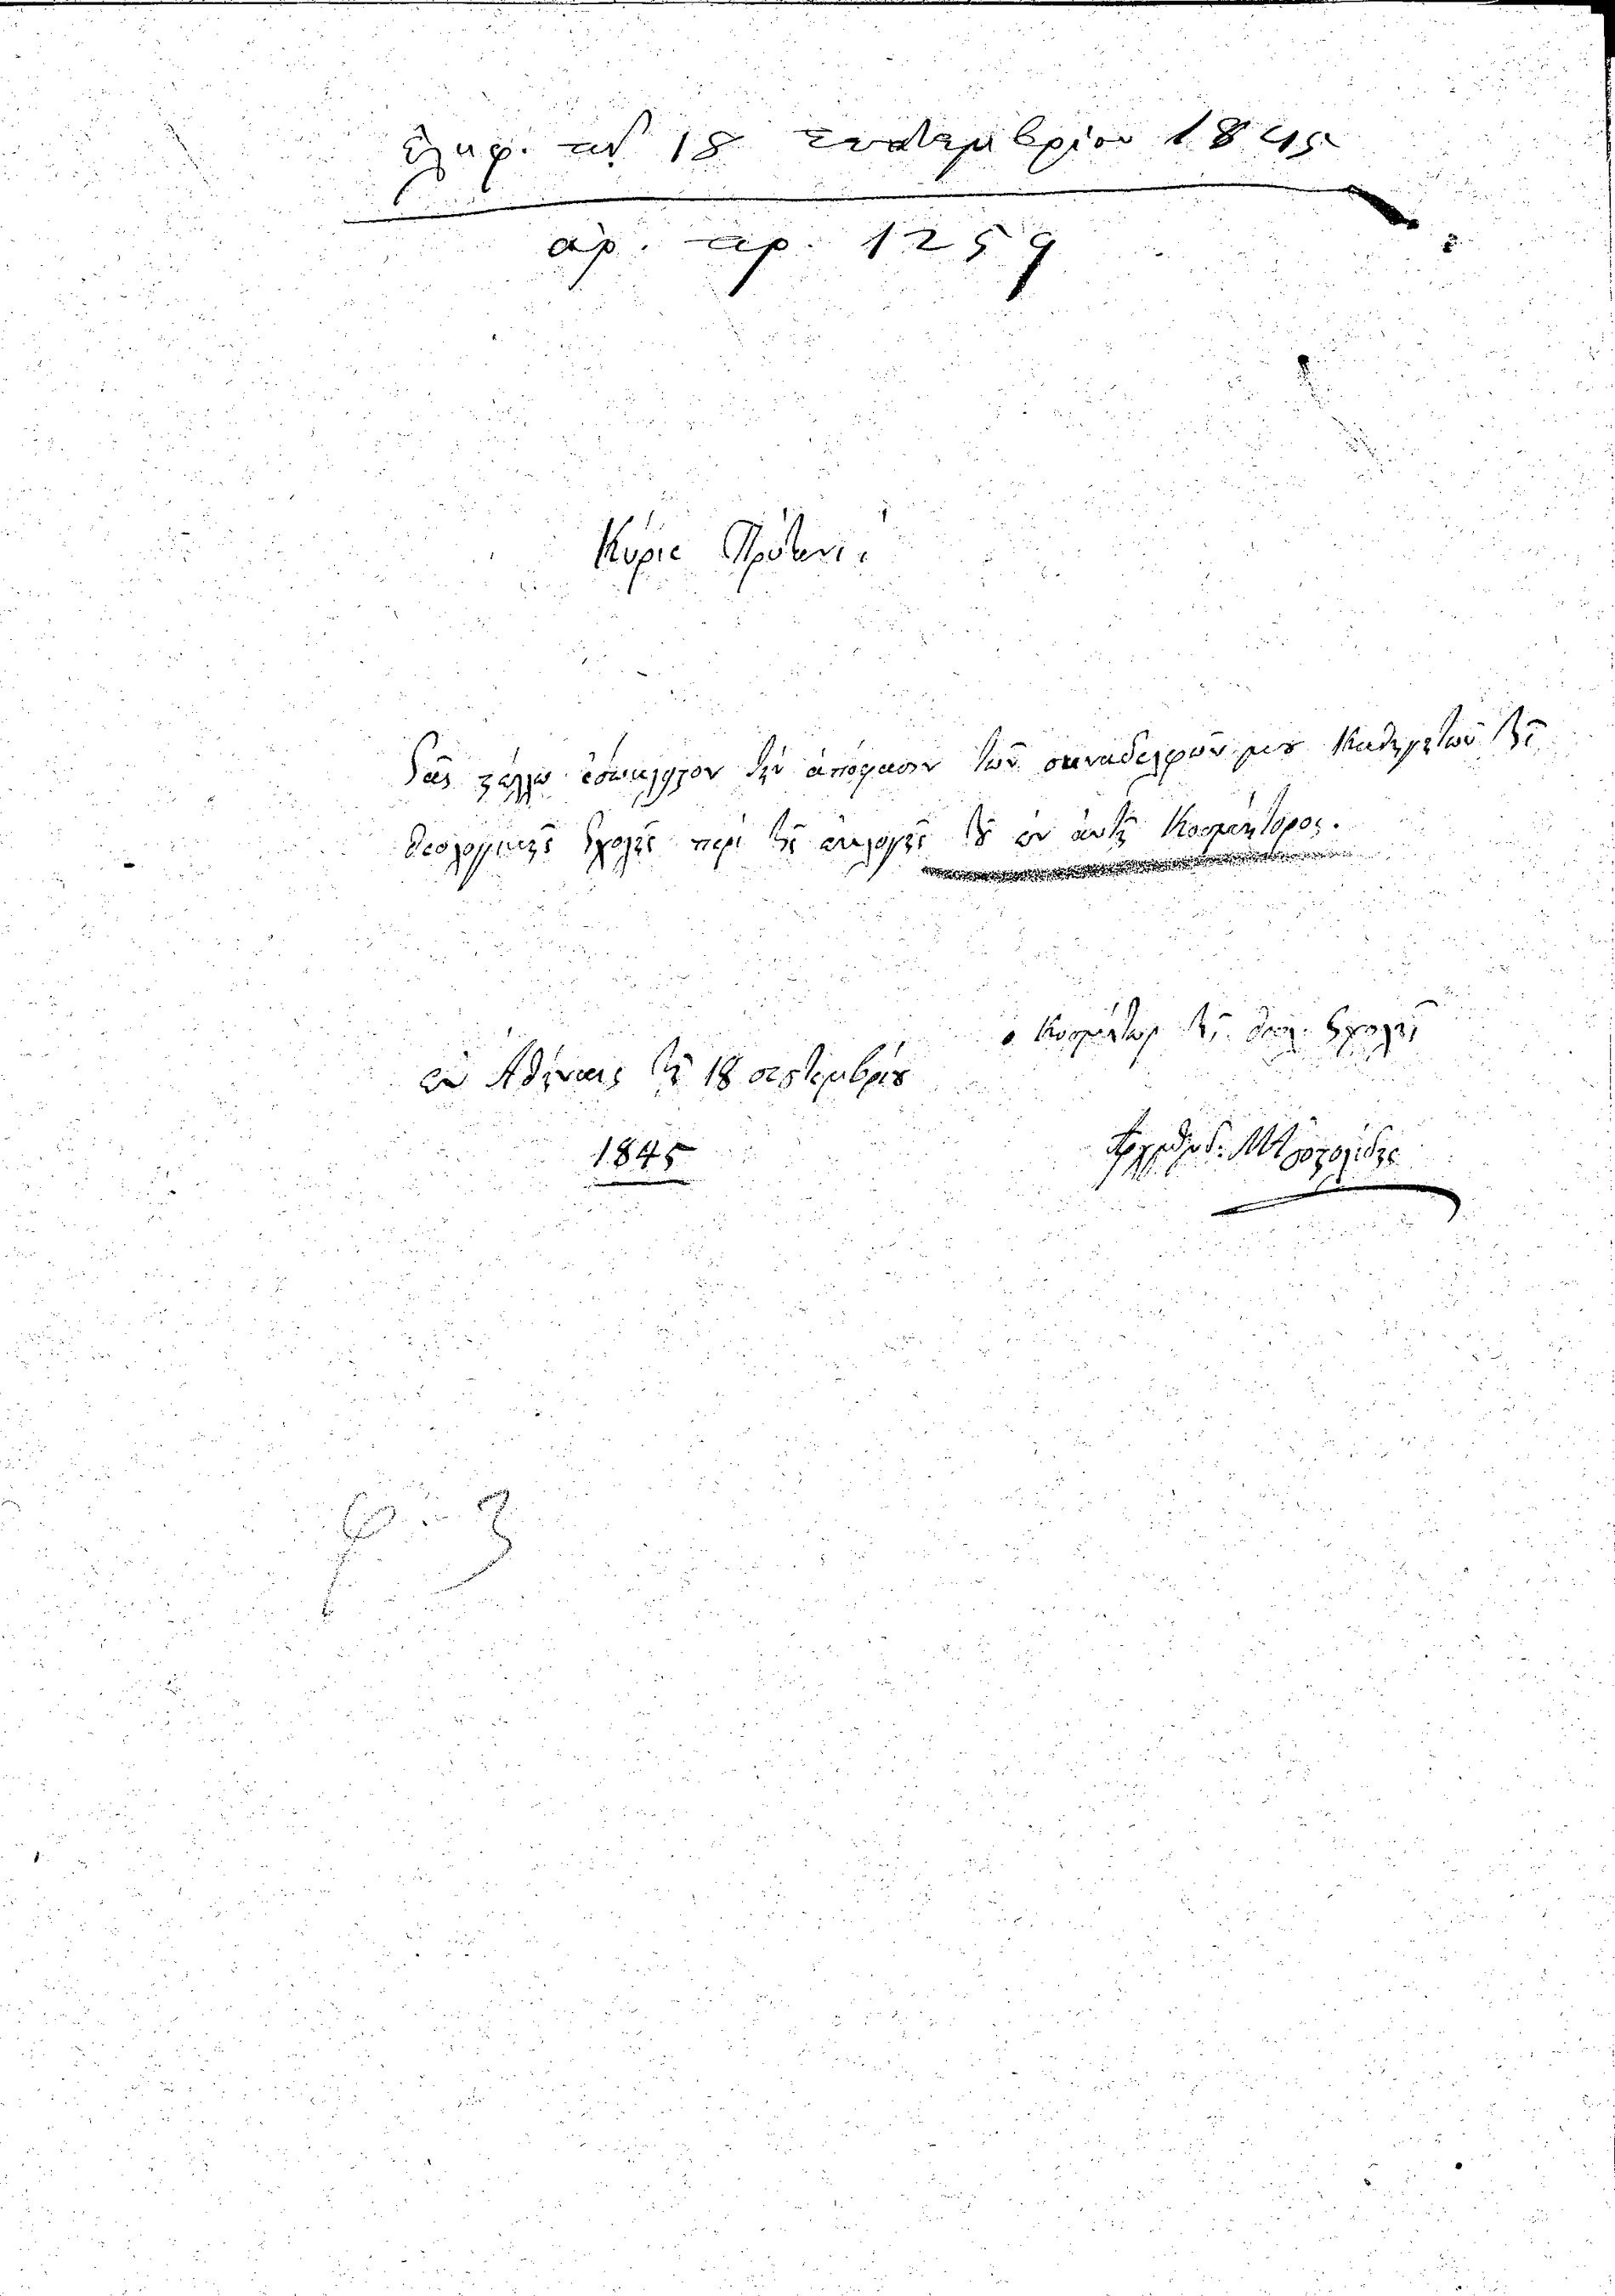 ἐλήφ. τῇ 18 Σεπτεμβρίου 1845
ἀρ. πρ. 1259
Κύριε Πρύτανι.
Σᾶς στέλλω ἐσώκλειστον τὴν ἀπόφασιν τῶν συναδελφῶν μου Καθηγητῶν τῆς
θεολογικῆς Σχολῆς περὶ τῆς ἐκλογῆς τοῦ ἐν αὐτῇ Κοσμήτορος.
ὁ Κοσμήτωρ τῆς θεολ. Σχολῆς
ἐν Ἀθήναις τῇ 18 σεπτεμβρίου
1845
Μ. Ἀποστολίδης
φ. 3